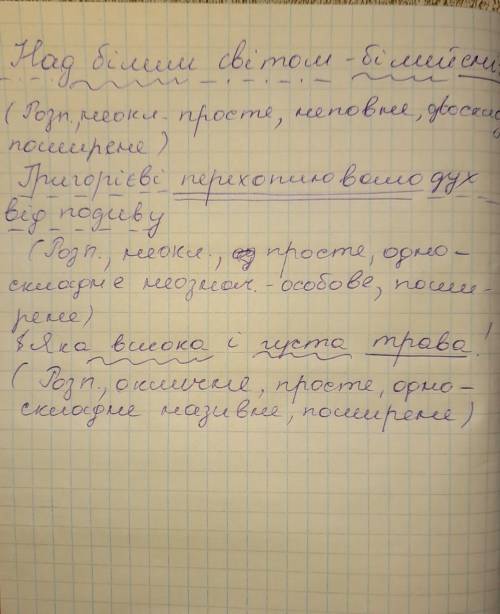 Над білим світом - білий сніг
(Розп., неокл. просте, неповне, двоскла
поширене)
Григорієві перехоплювало дух
від подиву
(Розп., неокл., просте, одно-
складне неознач. - особове, поши-
рене)
Яка висока і густа трава!
(Розп., окличне, просте, одно-
складне називне, поширене)